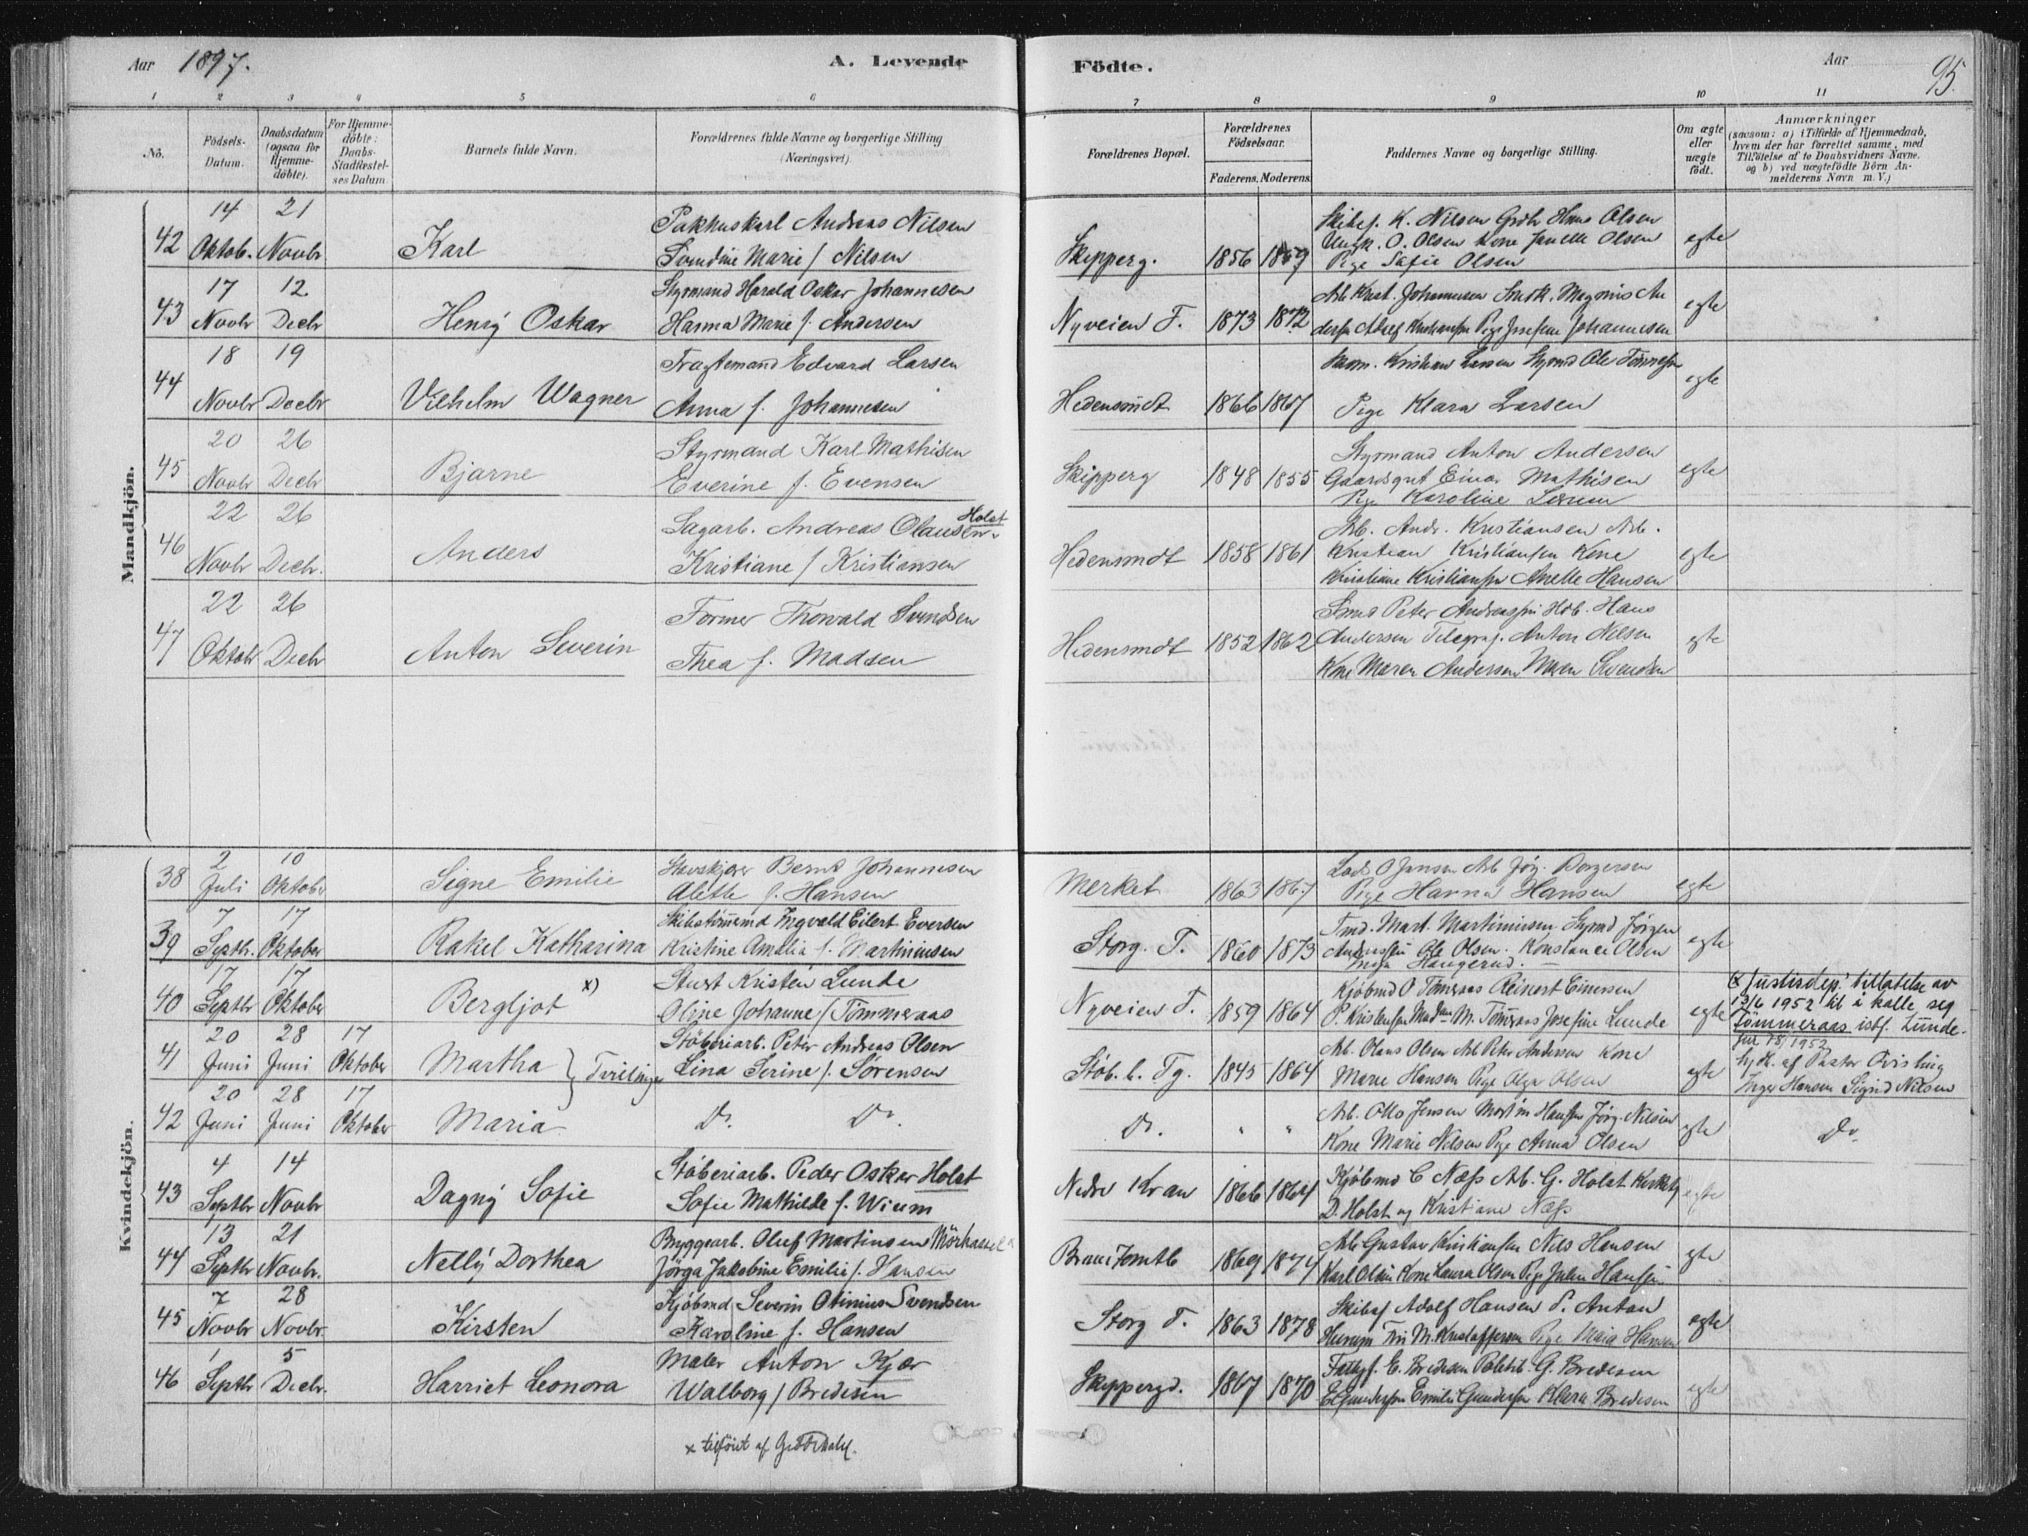 Aar 1897. A. Levende Födte. Aar 95.
1 2 3 4 5 6 7 8 9 10 11
No. Födsels-Datum. Daabsdatum (ogsaa for Hjemmedöbte). For Hjemmedöbte: Daabs-Stadfæstelses Datum. Barnets fulde Navn. Forældrenes fulde Navne og borgerlige Stilling (Næringsvei). Forældrenes Bopæl. Forældrenes Födselsaar. Faderens. Moderens. Faddernes Navne og borgerlige Stilling. Om ægte eller uægte födt. Anmærkninger (saasom: a) i Tilfælde af Hjemmedaab, hvem der har forrettet samme, med Tilföielse af to Daabsvidners Navne, og b) ved uægtefödte Börn Anmelderens Navn m. V.)
Mandkjön.
42 14 Oktob. 21 Novbr Karl Pakhuskarl Andreas Nilsen
Svendine Marie f. Nilsen Skipperg. 1856 1859 egte
K. Nilsen Hans Olsen
O. Olsen Kone Janette Olsen
Pige Sofie Olsen
43 17 Novbr 12 Decbr Henry Oskar Styrmand Harald Oskar Johannesen
Hanna Marie f. Andersen Nyveien T. 1873 1872 egte
Arb. Krist. Johannesen Smdk. Magnus An
dersen Adolf Kristiansen Pige Josefine Johannesen
44 18 Novbr 19 Decbr Vilhelm Wagner Fragtemand Edvard Larsen
Anna f. Johannesen Hedensmdt 1866 1867 egte
Kristian Larsen Styrmd Ole Tønnesen
Pige Klara Larsen
45 20 Novbr 26 Decbr Bjarne Styrmand Karl Mathisen
Everine f. Evensen Skipperg 1848 1855 egte
Styrmand Anton Andersen
Gaardsgut Einar Mathisen
Pige Karoline
46 22 Novbr 26 Decbr. Anders Sagarb. Andreas Olausen Holst
Kristiane f. Kristiansen Hedensmdt 1858 1861 egte
Arb. Andr. Kristiansen Arb.
Kristian Kristiansen Kone
Kristiane Kristiansen Anette Hansen
47 22 Oktobr 26 Decbr Anton Severin Former Thorvald Svendsen
Thea f. Madsen Hedensmdt 1852 1862 egte
Peter Andreassen Hdb. Hans
Andersen Telegraf. Anton Nilsen
Kone Maren Andersen Maren Svendsen
Kvindekjön.
38 2 Juli 10 Oktober Signe Emilie Bernt Johannesen
Alette f. Hansen Merket 1863 1867 egte
Lods O Jensen Arb Jørg. Torgersen
Pige Hanna Hansen
39 7 Septbr. 17 Oktober Rakel Katharina Skibstømmemd Ingvald Eilert Eversen
Kristine Amalia f. Martinusen Storg. T. 1860 1873 egte
Tmd. Mart. Martinusen Styrmd Jørgen
Andreassen Ole Olsen. Konstance Olsen
Haugerud.
40 17 Septbr 17 Oktober Bergljot x) Stuert Kristen Lunde
Oline Johanne f. Tømmeraas Nyveien T. 1859 1864 egte
Kjøbmd O Tømeraas Reinert Einersen
P. Kristensen Madam M. Tømeraas Josefine Lunde
x) Justisdep.' tillatelse av
13/6 1952 til å kalle seg
Tømmeraas istf. Lunde.
1952
41 20 Juni 28 Juni 17 Oktober Martha } Tvillinger Støberiarb. Peter Andreas Olsen
Lina Serine f. Sørensen Støb. b. Tg. 1845 1864 egte
Arb. Olaus Olsen Arb Peter Andersen Kone
Marie Hansen Pige Olga Olsen
Hj. d. af Pastor Qvisling
Inger Hansen Sigrid Nilsen
42 20 Juni 28 Juni 17 Oktober Maria Do. Do. Do. " " egte Do.
Arb. Otto Jensen Martin Hansen Jørg. Nilsen
Kone Marie Nilsen Pige Anna Olsen
43 4 Septbr 14 Novbr Dagny Sofie Støberiarb. Peder Oskar Holst
Sofie Mathilde f. Wium Nedre Kran 1866 1864 egte
Kjøbmd C Næss Arb. G. Holst
D. Holst og Kristiane Næss
44 13 Septbr 21 Novbr. Nelly Dorthea Bryggearb. Oluf Martinsen
Jørga Jakobine Emilie f. Hansen 1869 1874 egte
Arb Gustav Kristiansen Nils Hansen
Karl Olsen Kone Laura Olsen Pige Julie Hansen
45 7 Novbr 28 Novbr. Kirsten Kjøbmd Severin Otinius Svendsen
Karoline f. Hansen Storg T. 1863 1878 egte
Skibsf Adolf Hansen S. Anton
M. Kristoffersen Pige Maria Hansen
46 1 Septbr 5 Decbr. Harriet Leonora Maler Anton Kjær
Walborg f. Bredesen Skippergd. 1867 1870 egte
E. Bredesen G. Bredesen
E Gundersen Emilie Gundersen Klara Bredesen
x tilføiet af